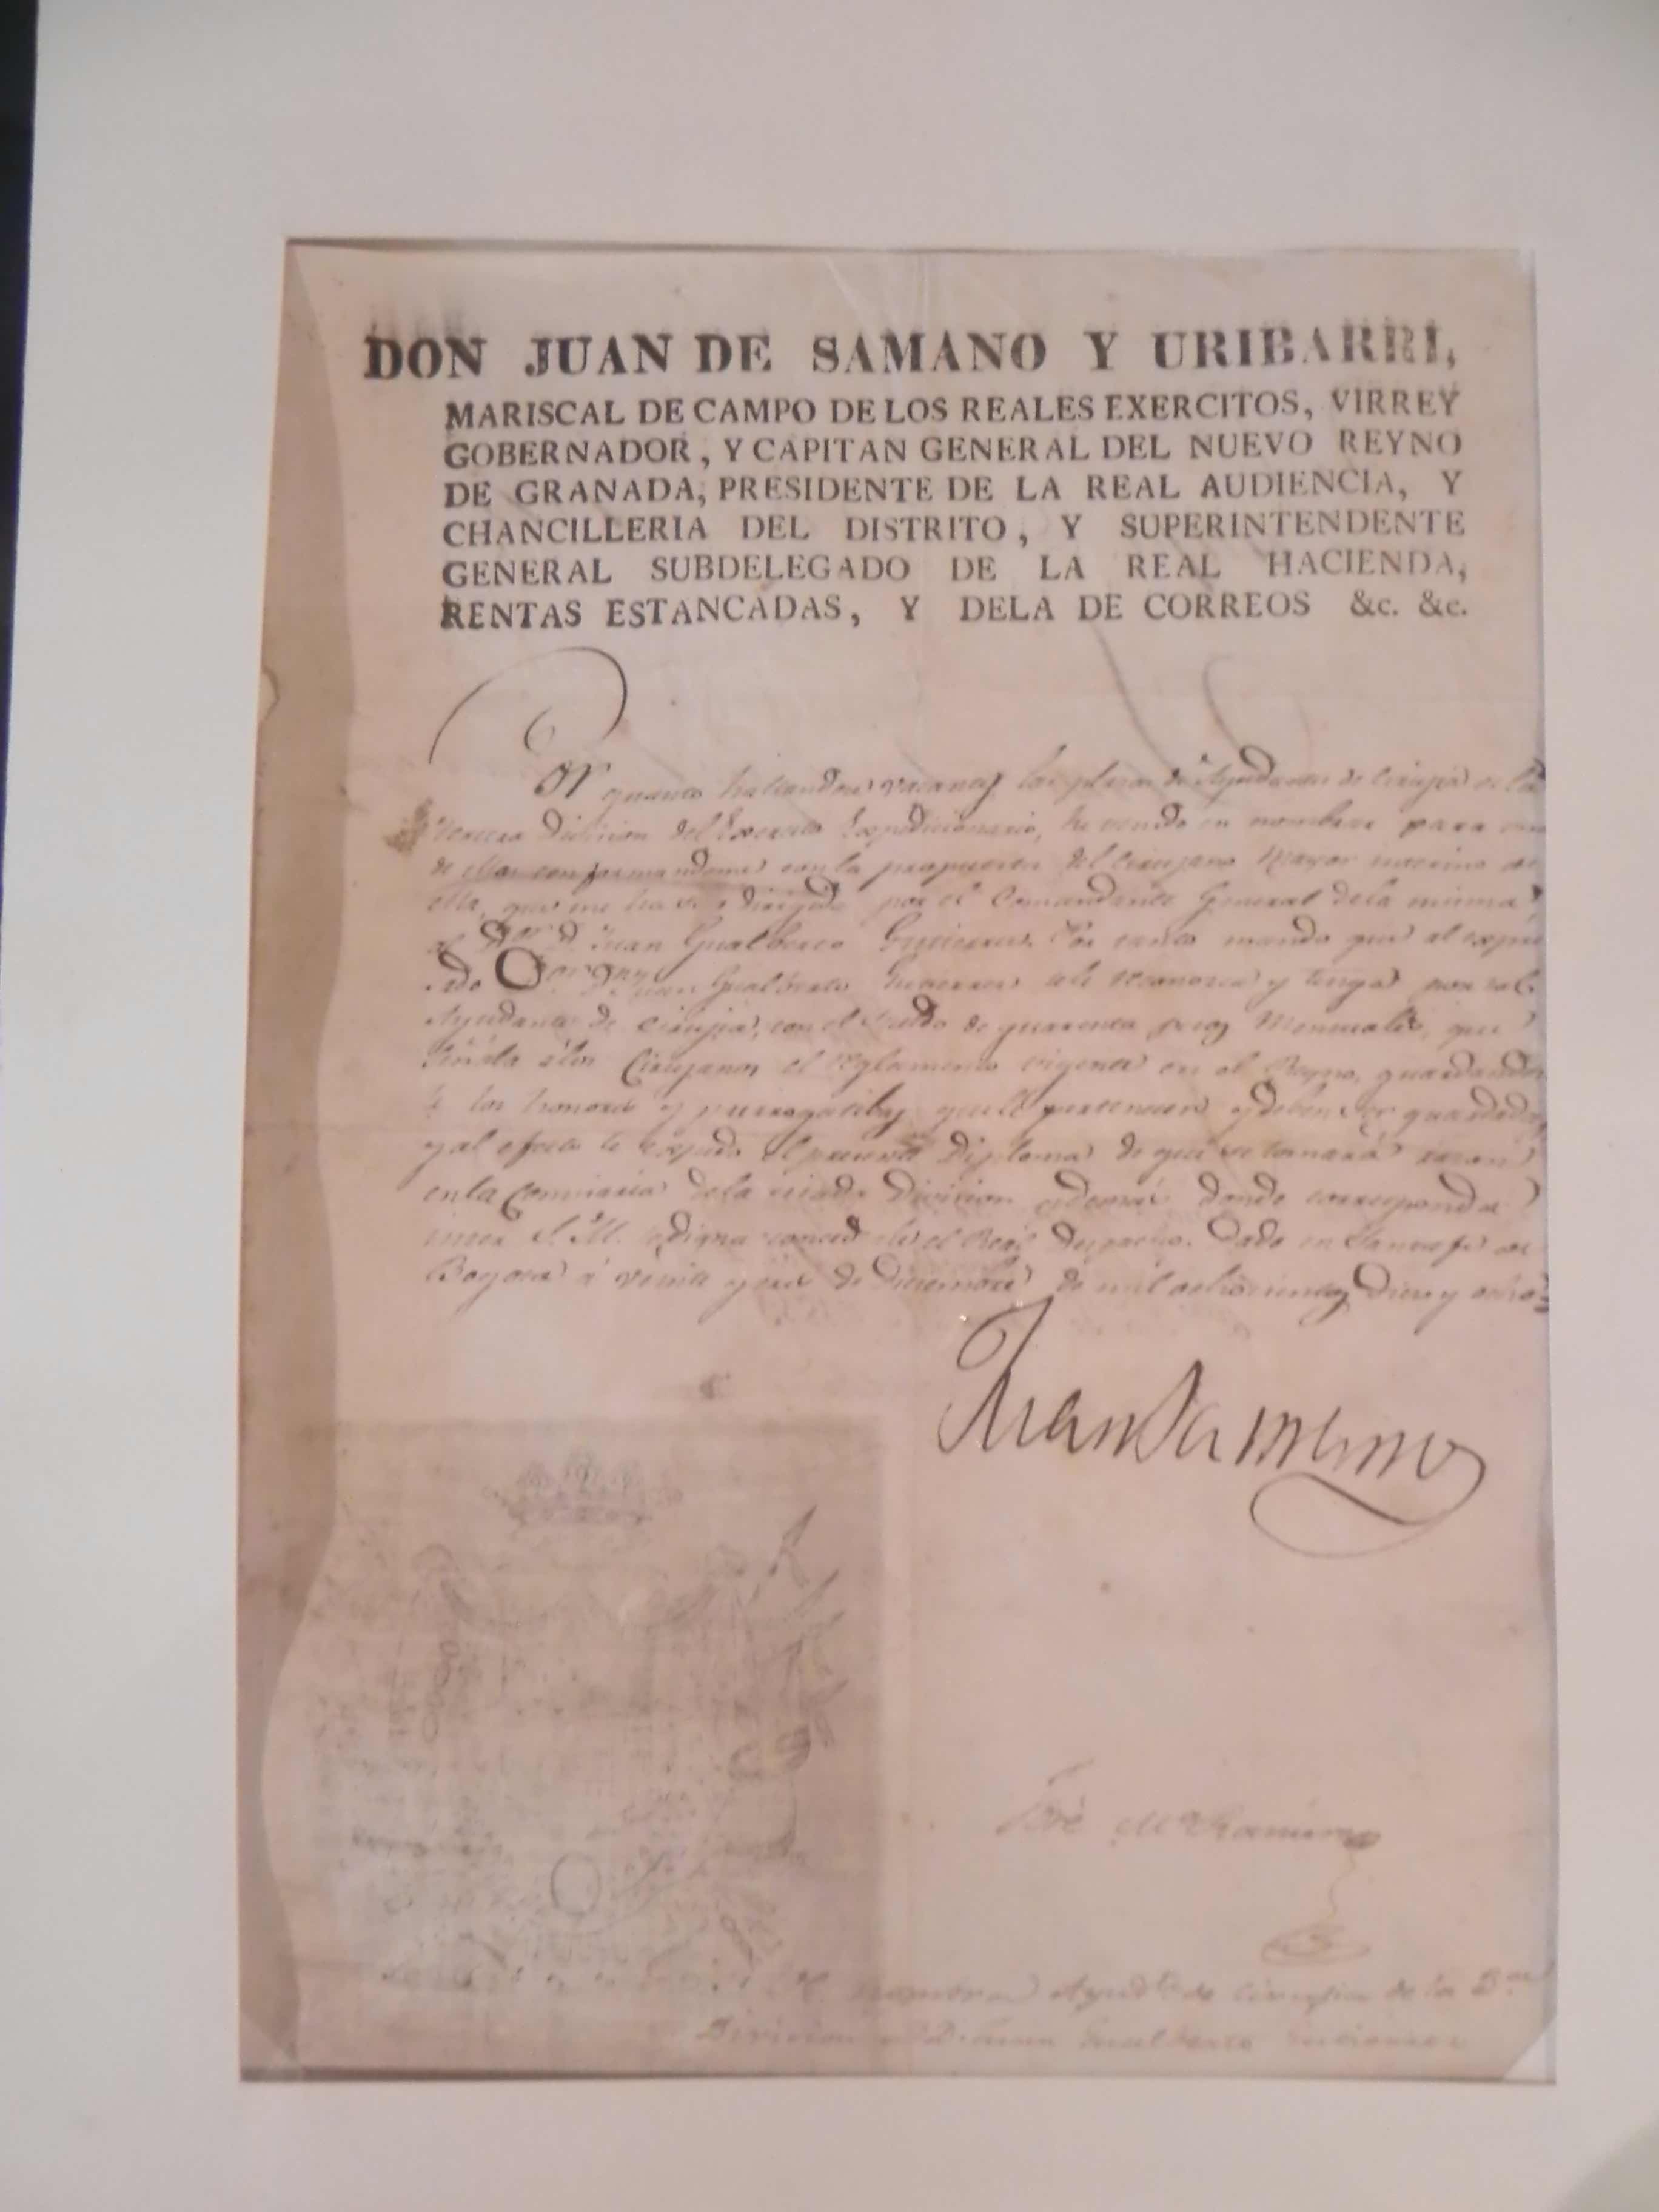 DON JUAN DE SAMANO Y URIBARRI,
MARISCAL DE CAMPO DE LOS REALES EXERCITOS, VIRREY
GOBERNADOR, Y CAPITAN GENERAL DEL NUEVO REYNO
DE GRANADA, PRESIDENTE DE LA REAL AUDIENCIA, Y
CHANCILLERIA DEL DISTRITO, Y SUPERINTENDENTE
GENERAL SUBDELEGADO DE LA REAL HACIENDA,
RENTAS ESTANCADAS, Y DELA DE CORREOS &c. &c.
Por quanto hallandose vacantes las plazas de Ayudantes de Cirujia de la
tercera Division del Exercito Expedicionario, he venido en nombrar para una
de ellas conformandome con la propuesta del Cirujano Mayor interino de
ella, que me ha sido dirigida por el Comandante General dela misma,
al Dor. Dn. Juan Gualberto Gutierrez. Por tanto mando que al expre
sado Dor. Dn. Juan Gualberto Gutierrez se le reconozca y tenga por tal
Ayudante de Cirujia, con el sueldo de quarenta pesos mensuales, que
señala á los Cirujanos el reglamento vigente en el Reyno, guardandose
le los honores y prerrogatibas que le pertenecen y deben ser guardadas,
y al efecto le expido el presente Diploma de que se tomará razon
en la Comisaria dela citada Division y demas donde corresponda
S. M. se digna concederle el Real Despacho. Dado en Santafe de
Bogotá á veinte y seis de Diciembre de mil ochocientos Diez y ocho
Juan Samano
José M. Ramirez
nombra Ayudte. de Cirugia de la 3ra.
Division á Dn. Juan Gualberto Gutierrez